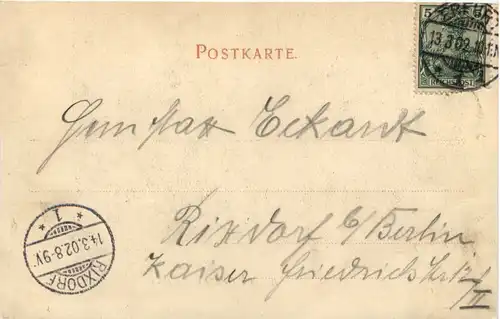 POSTKARTE.
5
13.3.02
REICHSPOST
Eckardt
Rixdorf b/Berlin
Kaiser Friedrichstr.
II
RIXDORF
14.3.02.8-9V.
* 1 *